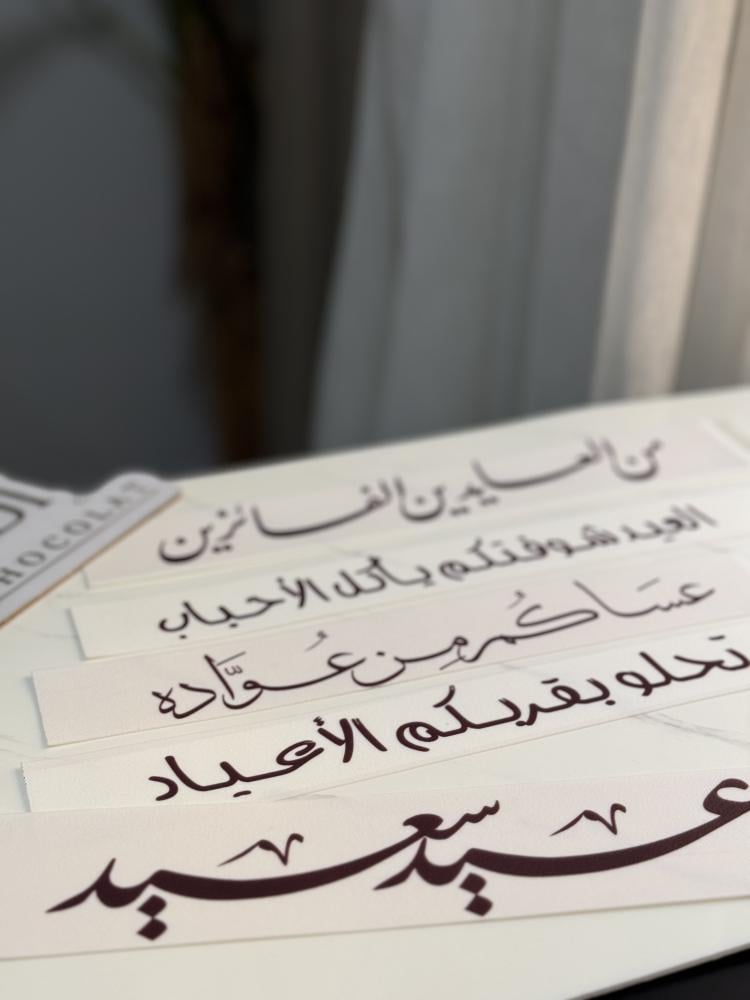 من العايدين الفائزين
العيد شوفتكم يا كل الأحباب
عسَاكُم مِن عُوَّاده
تحلو بقربكم الأعياد
عيد سعيد
HOCOLAT